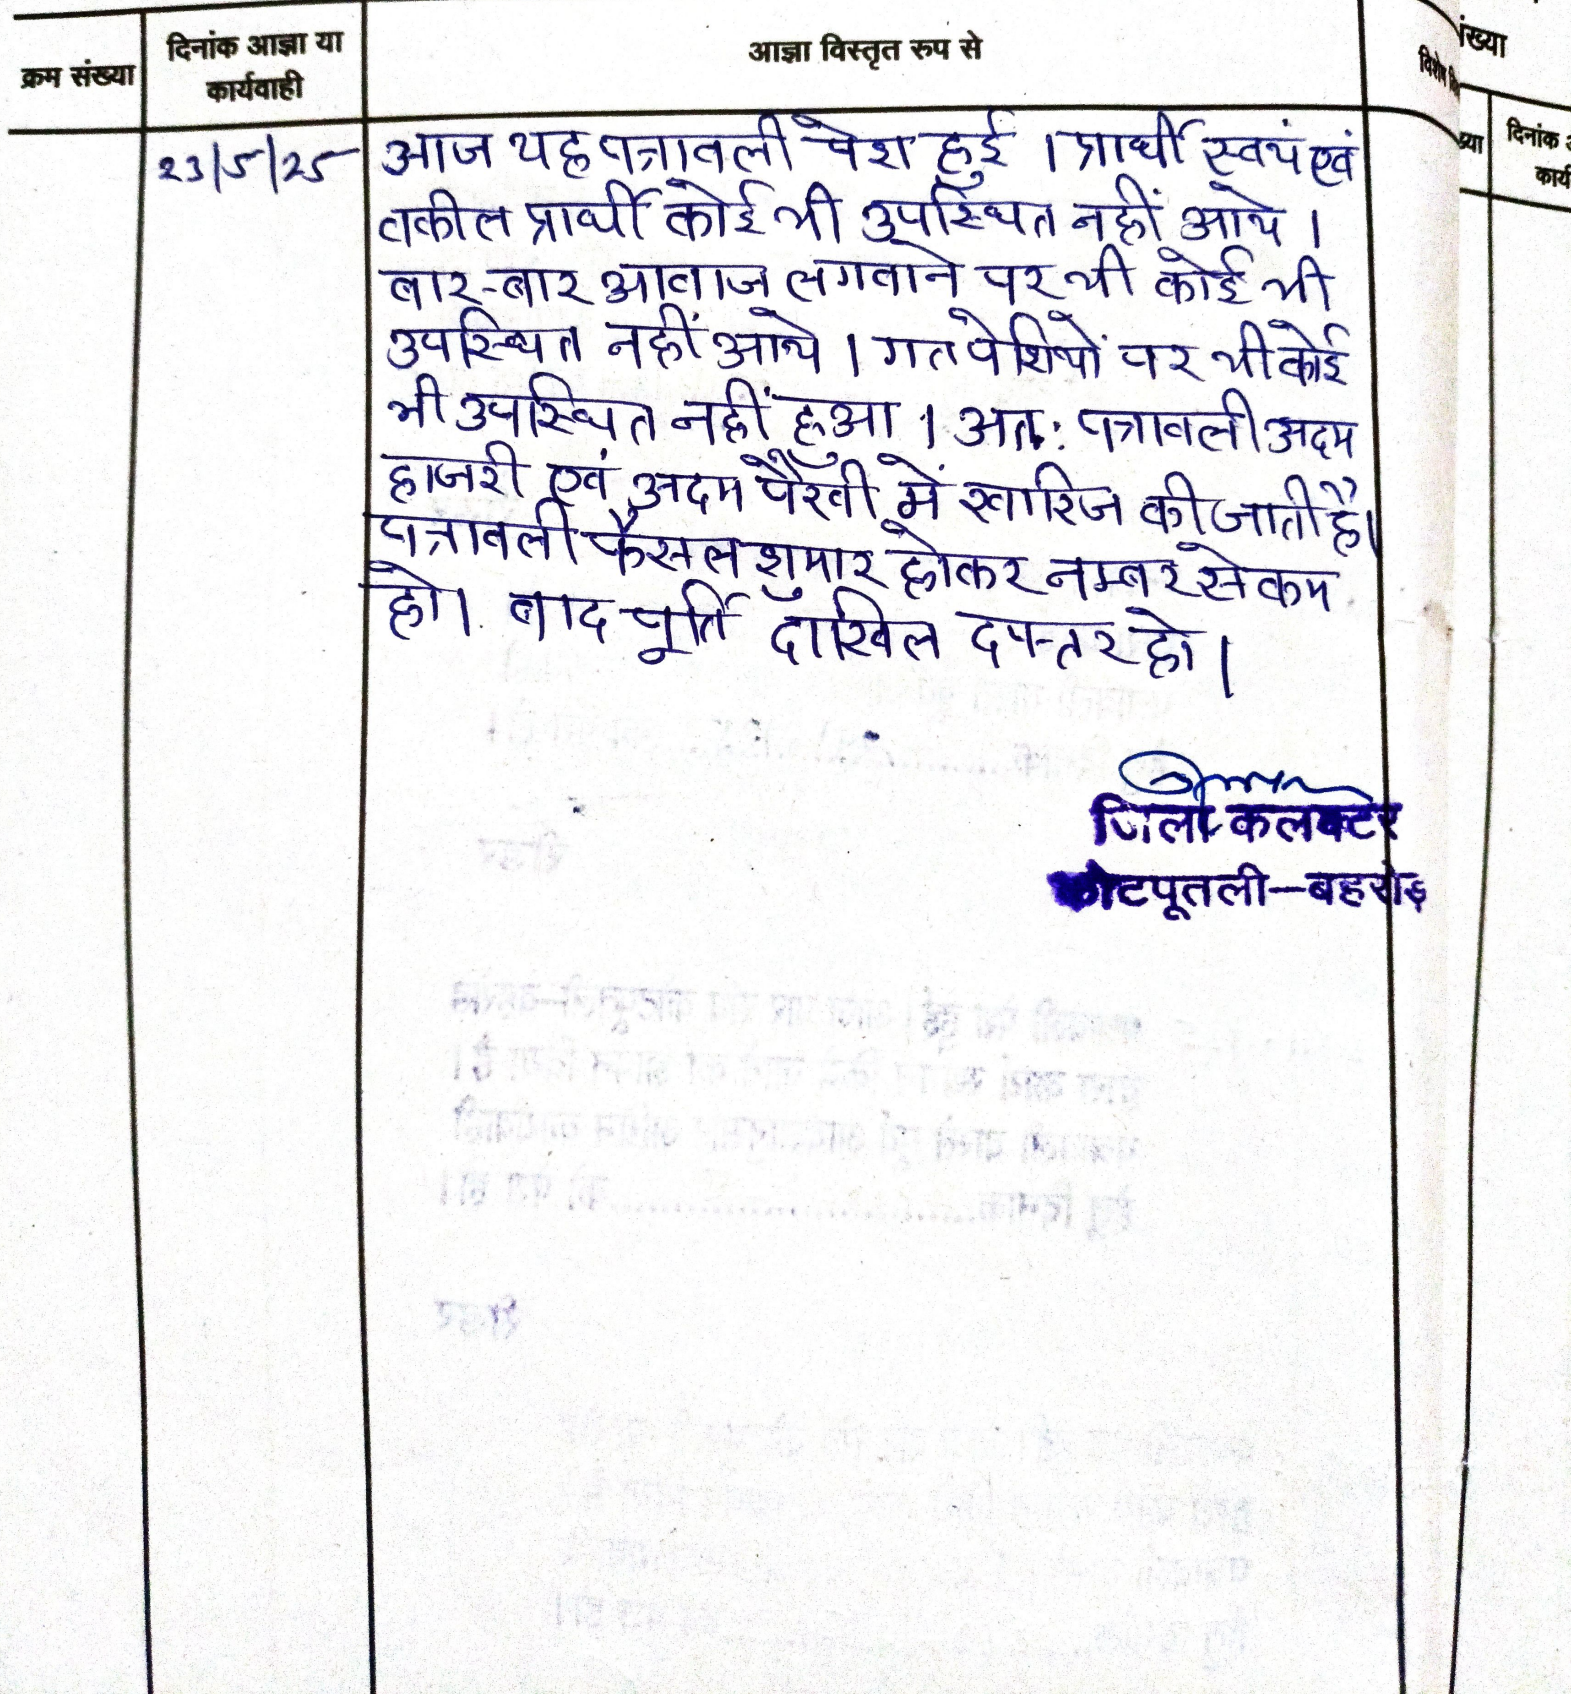 क्रम संख्या
दिनांक आज्ञा या
कार्यवाही
आज्ञा विस्तृत रुप से
23/5/25
आज यह पत्रावली पेश हुई । प्रार्थी स्वयं एवं
वकील प्रार्थी कोई भी उपस्थित नहीं आये ।
बार-बार आवाज लगवाने पर भी कोई भी
उपस्थित नहीं आये । गत पेशियों पर भी कोई
भी उपस्थित नहीं हुआ । अतः पत्रावली अदम
हाजरी एवं अदम पैरवी में खारिज की जाती है।
पत्रावली फैसल शुमार होकर नम्बर से कम
हो। बाद पूर्ति दाखिल दफ्तर हो ।
जिला कलक्टर
कोटपूतली-बहरोड़
दिनांक